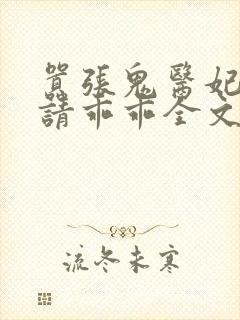 囂張鬼醫妃
請乖乖全文
流冬未寒